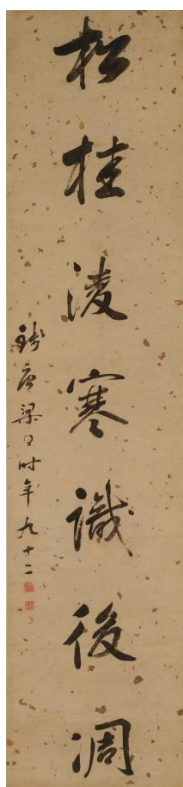 松桂淩寒識後凋
錢唐梁同書年九十二